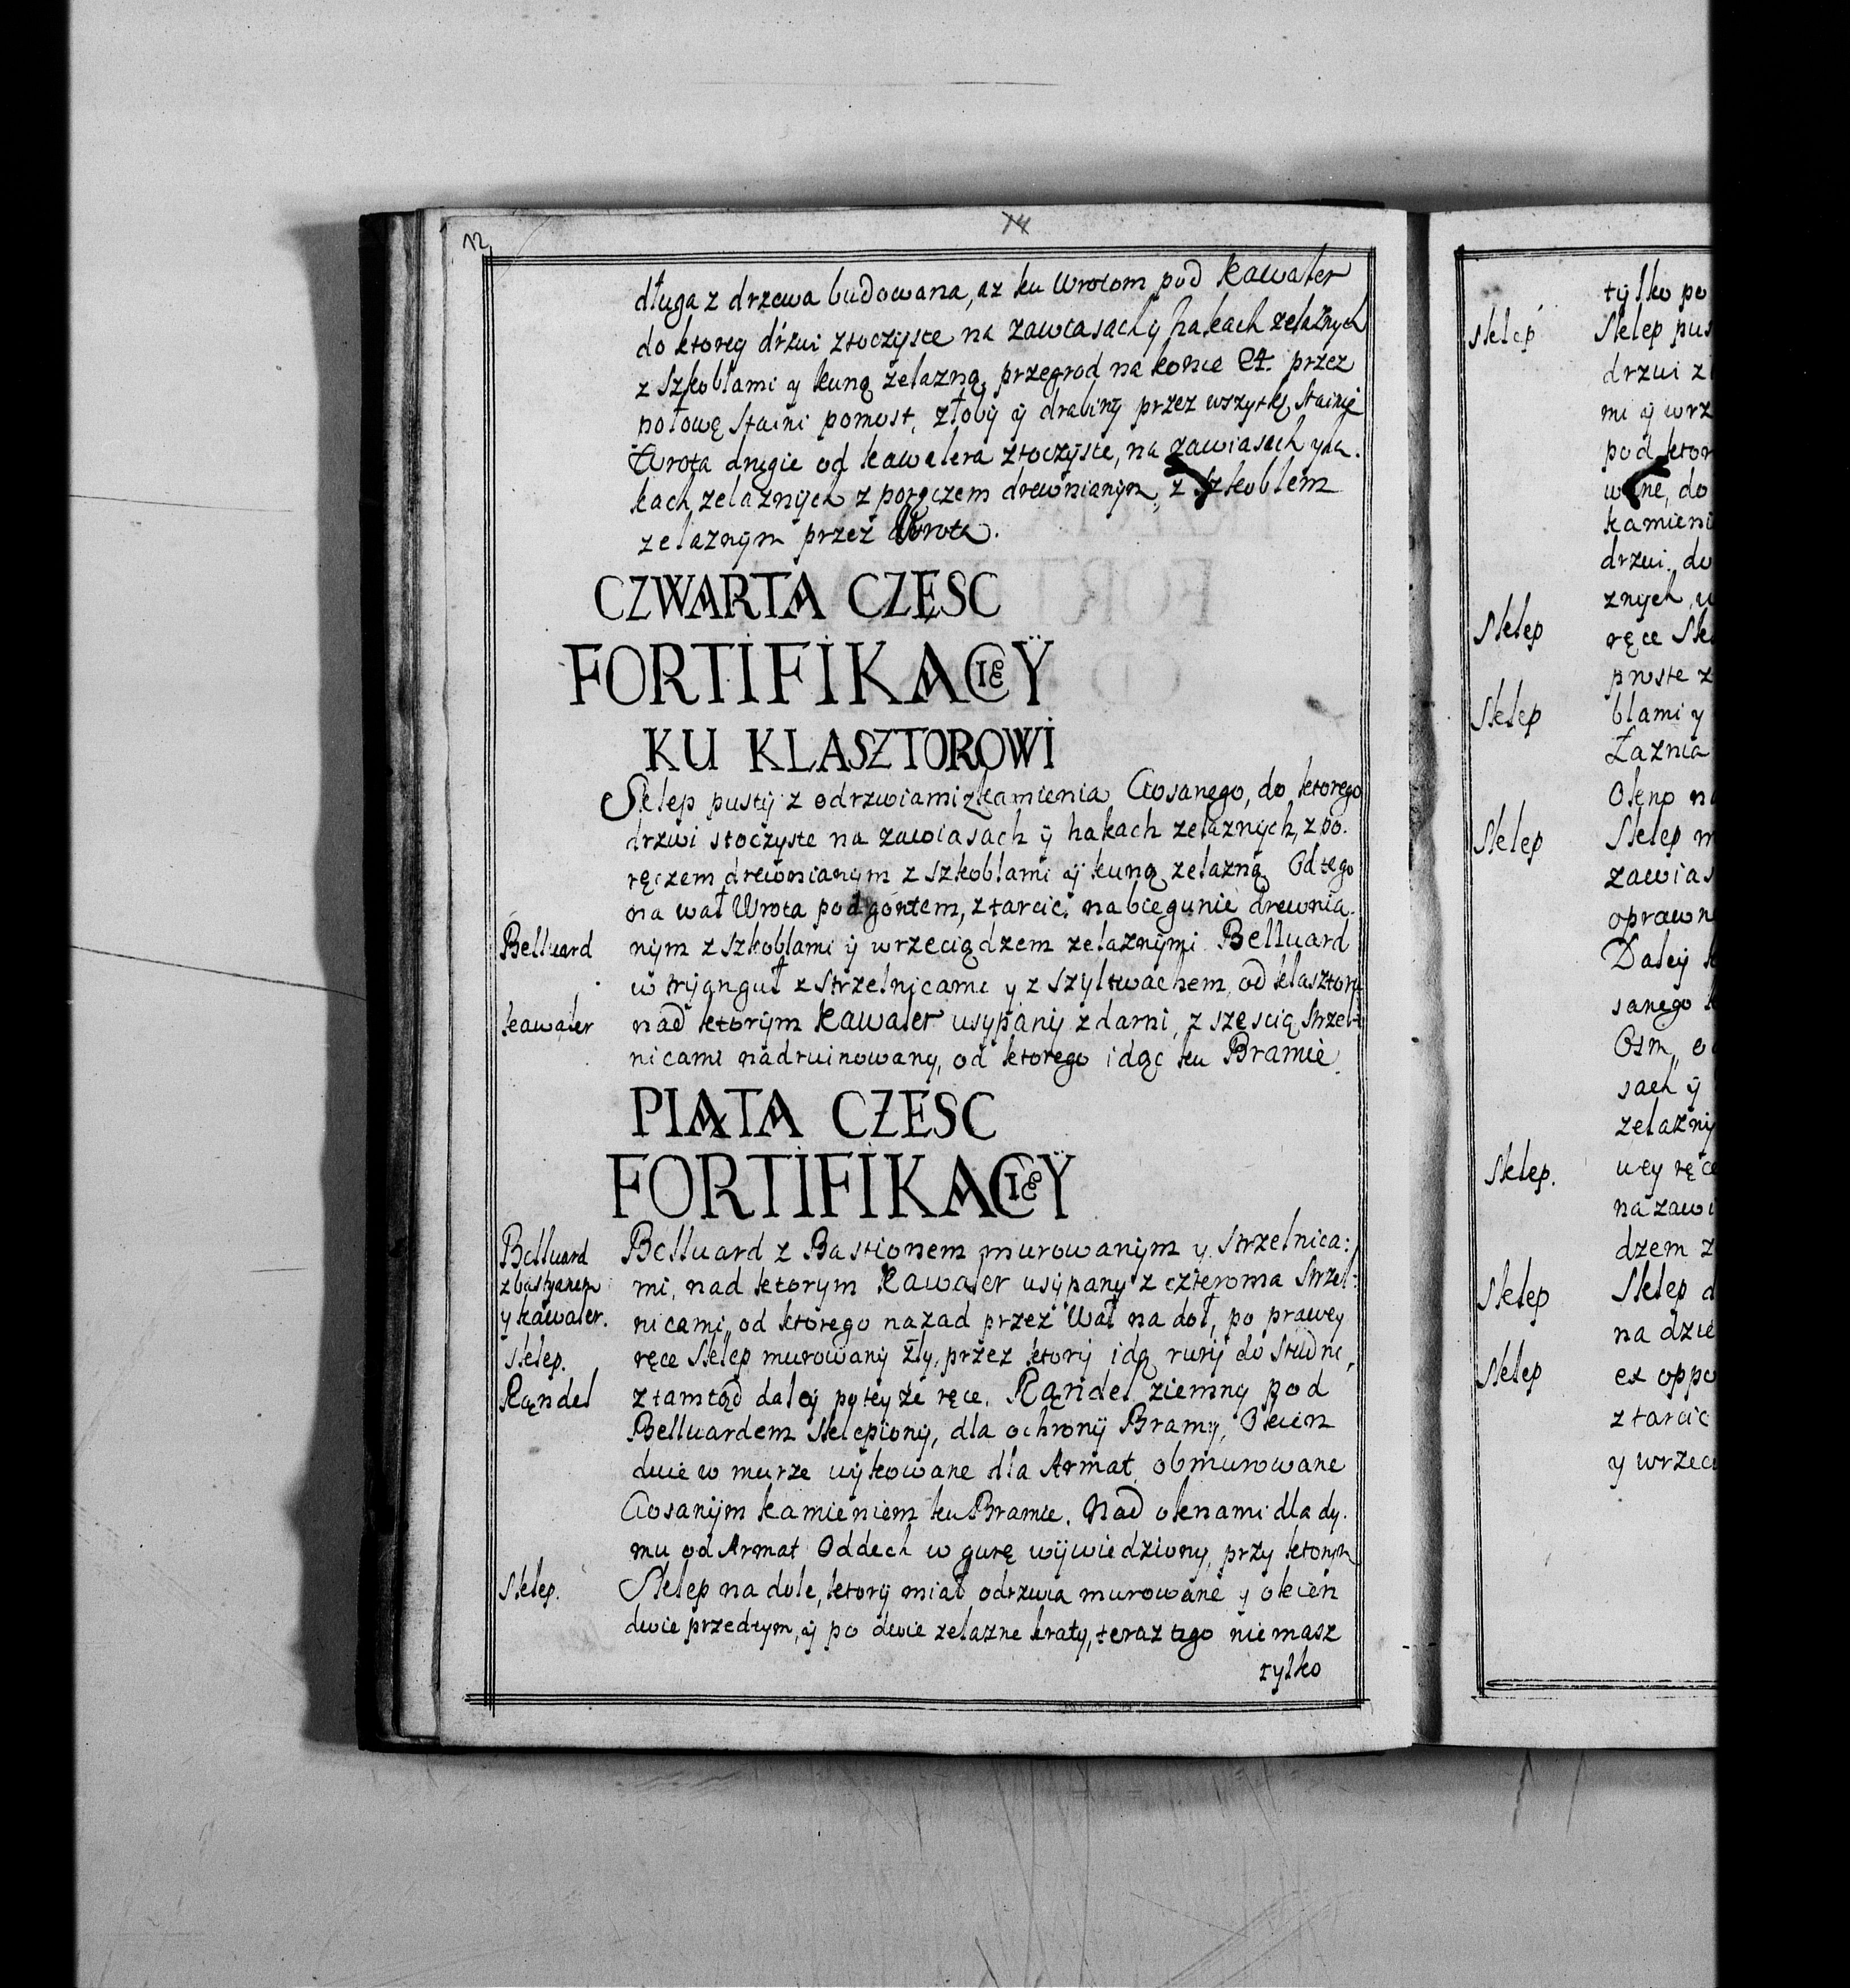 12
14
długa z drzewa budowana, az ku Wrotom pod Kawaler
do ktorey drzwi ztoczyste na zawiasach y hakach zelaznych
z szkoblami y kuną zelazną, przegrod na konie 24. przez
połowę stajni pomost, złoby ÿ drabiny przez wszytkę stainię
Wrota drugie od kawalera ztoczyste, na zawiasach y ha.
kach zelaznych z poręczem drewnianym, z szkoblem
zelaznym przez Wrota.
CZWARTA CZĘSC
FORTIFIKACIEY
KU KLASZTOROWI
Sklep pusty z odrzwiami z kamienia Ciosanego, do ktorego
drzwi stoczyste na zawiasach ÿ hakach zelaznych, z po.
ręczem drewnianym z szkoblami ÿ kuną zelazną Od tego
na wał Wrota pod gontem, z tarcic, na biegunie drewnia.
Belluard
nym z szkoblami ÿ wrzeciądzem zelaznymi Belluard
w tryanguł z strzelnicami y z szyltwachem, od klasztoru
kawaler
nad ktorym Kawaler usypany z darni, z szescią strzel:
nicami nadruinowany, od ktorego idąc ku Bramie.
PIĄTA CZESC
FORTIFIKACIEY
Belluard
Belluard z Bastionem murowanym y strzelnica:
z bastyanem
mi, nad ktorym Kawaler usypany z czterema strzel:
y kawaler.
nicami, od ktorego nazad przez Wał na doł, po prawey
sklep.
ręce Sklep murowany zły, przez ktory idą rury do studni,
Rąndel
z tamtąd daley po tey ze ręce. Rąndel ziemny pod
Belluardem sklepiony, dla ochrony Bramy, Okien
dwie w murze wykowane dla Armat, obmurowane
Ciosanÿm kamieniem ku Bramie. Nad oknami dla dy.
mu od Armat Oddech w gurę wÿwiedziony, przy ktorym
Sklep.
Sklep na dole, ktorÿ miał odrzwia murowane y okien
dwie przedtym, ÿ po dwie zelazne kraty, teraz tego nie masz
tylko
tÿlko po
sklep
Sklep pus
drzwi z
mi ÿ wrz
pod ktor
do
kamieni
drzwi do
znÿch
Sklep
ręce Skl
proste z
Sklep
blami y
Łaznia
Okno n
Sklep
Sklep m
zawias
oprawn
Daleÿ
sanego
Osm
sach ÿ
zelazny
Sklep.
wey ręce
na zawi
dzem z
Sklep
Sklep d
na dzie
Sklep
ex oppo
z tarcic
y wrzeci